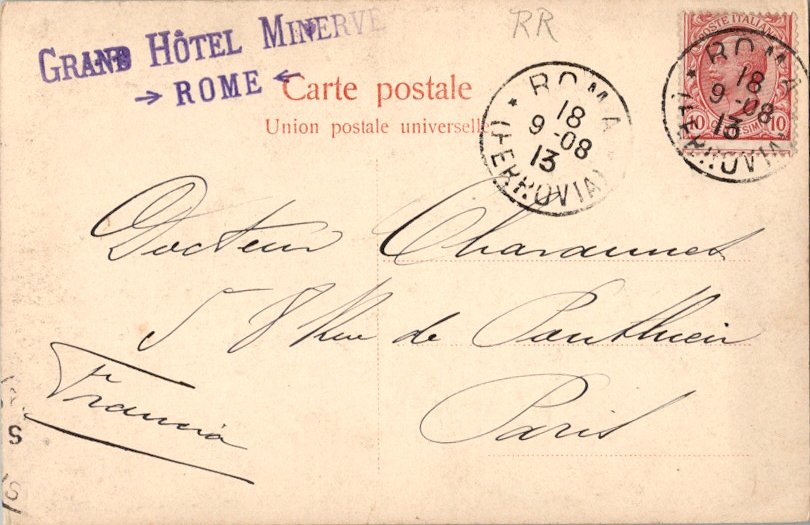 GRAND HÔTEL MINERVE
→ ROME ←
RR
Carte postale
Union postale universelle
ROMA
18
9-08
13
(FERROVIA)
POSTE ITALIANE
10 10
ROMA
18
9-08
13
(FERROVIA)
Docteur
58 Rue de Ponthieu
Paris
Francia
S